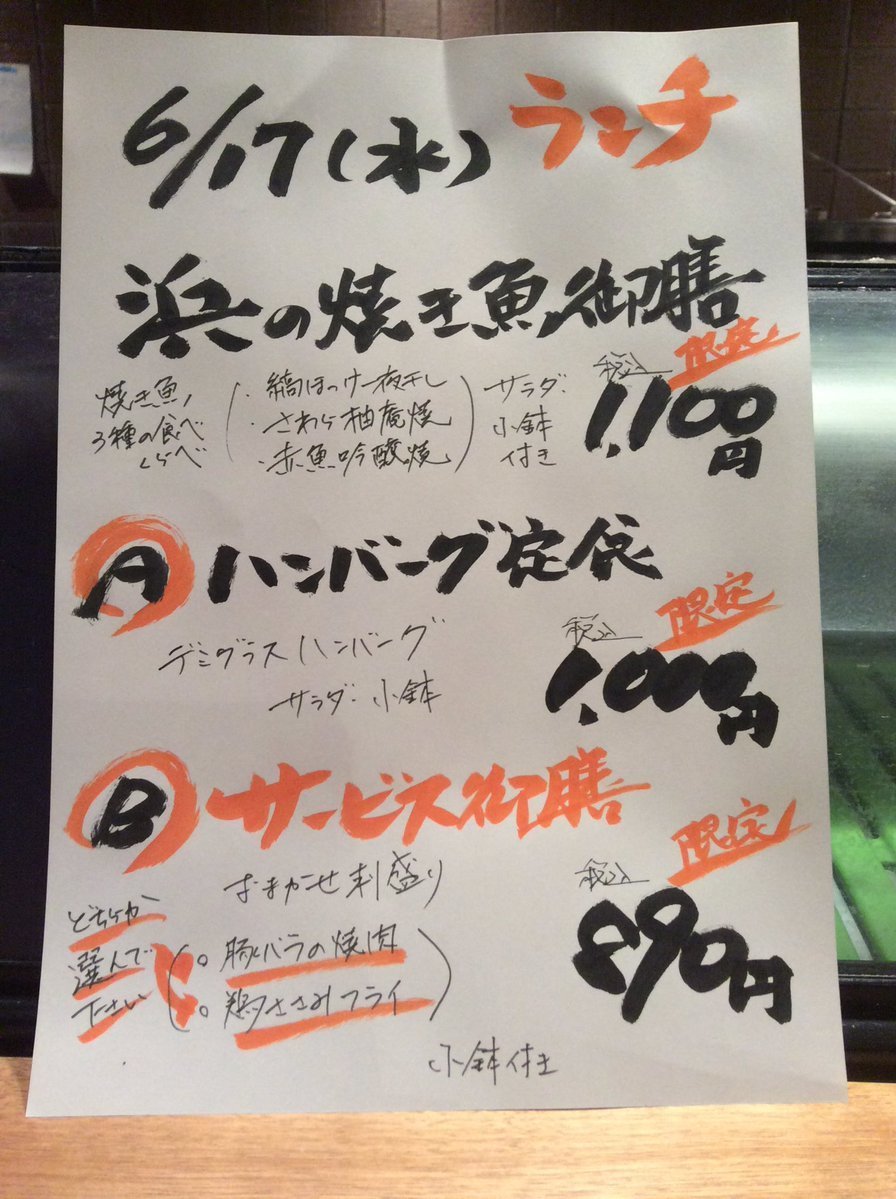 6/17(水) ランチ
浜の焼き魚御膳
限定
焼き魚
3種の食べ
くらべ
・縞ほっけ一夜干し
・さわら柚庵焼
・赤魚吟醸焼
サラダ・
小鉢
付き
税込
1,100円
A ハンバーグ定食
限定
デミグラスハンバーグ
サラダ・小鉢
税込
1,000円
B サービス御膳
限定
おまかせ刺盛り
どちらか
選んで
下さい
。豚バラの焼肉
。鶏ささみフライ
税込
890円
小鉢付き